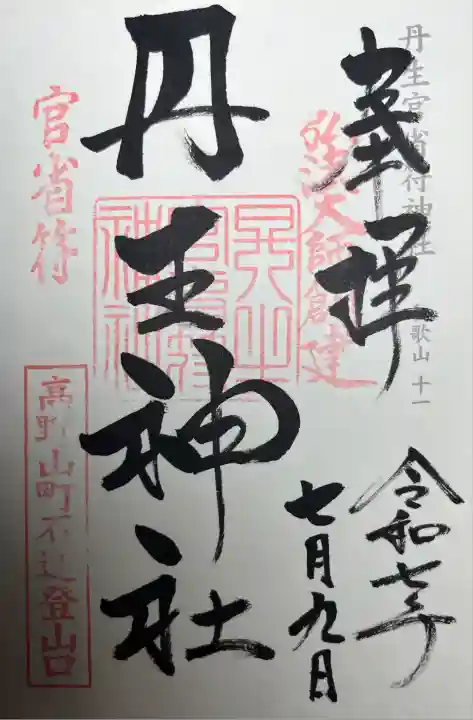 丹生官省符神社
歌山 十一
奉拝
弘法大師創建
令和七年
七月九日
丹生神社
官省符
高野山町石道登山口